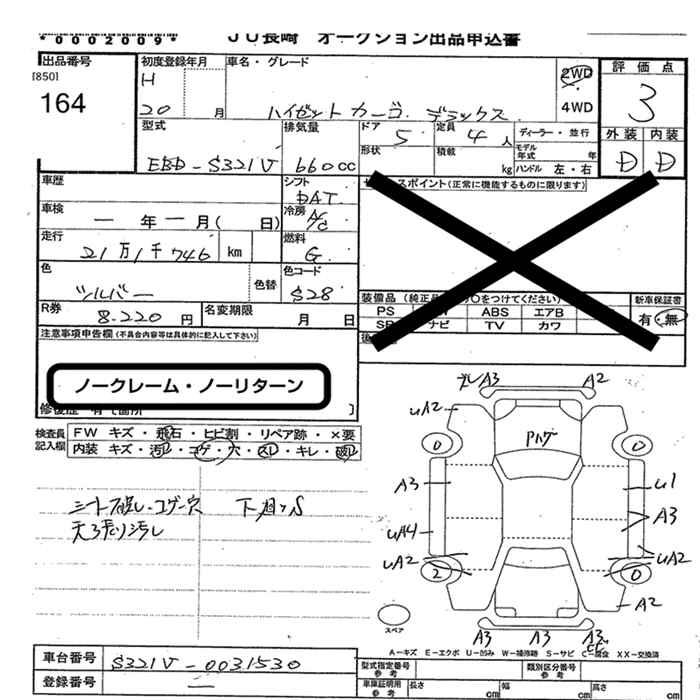 *0002009*
JU長崎 オークション出品申込書
出品番号
[850]
164
初度登録年月
H
20 月
車名・グレード
ハイゼットカーゴ デラックス
2WD
4WD
評価点
3
外装 内装
D D
型式
EBD-S321V
排気量
660cc
ドア 5
形状
定員 4人
積載 kg
ディーラー・並行
モデル年式 年
ハンドル 左・右
車歴
車検
ー年ー月( 日)
走行
21万1千746 km
色
シルバー
色替
シフト
DAT
冷房 A/C
燃料
G
色コード
S28
R券
8.220円
名変期限
月 日
スポイント(正常に機能するものに限ります)
装備品(純正品 ○をつけてください)
PS ABS エアB
ナビ TV カワ
新車保証書
有・無
注意事項申告欄(不具合内容等は具体的に記入して下さい)
ノークレーム・ノーリターン
検査員記入欄
FW キズ・飛石・ヒビ割・リペア跡・×要
内装 キズ・汚レ・コゲ・穴・スレ・キレ・破レ
シート破レ・コゲ穴 下廻りS
天張り汚レ
A3 A2
uA2
0 0
Pハゲ
A3 u1
A3
uA4
uA2 uA2
2 0
A2
スペア
A3 A3 A3
A-キズ E-エクボ U-凹み W-補修跡 S-サビ C-腐食 XX-交換済
車台番号
S321V-0031530
登録番号
ー
型式指定番号
参考
類別区分番号
参考
車庫証明用
参考
長さ cm
幅 cm
高さ cm